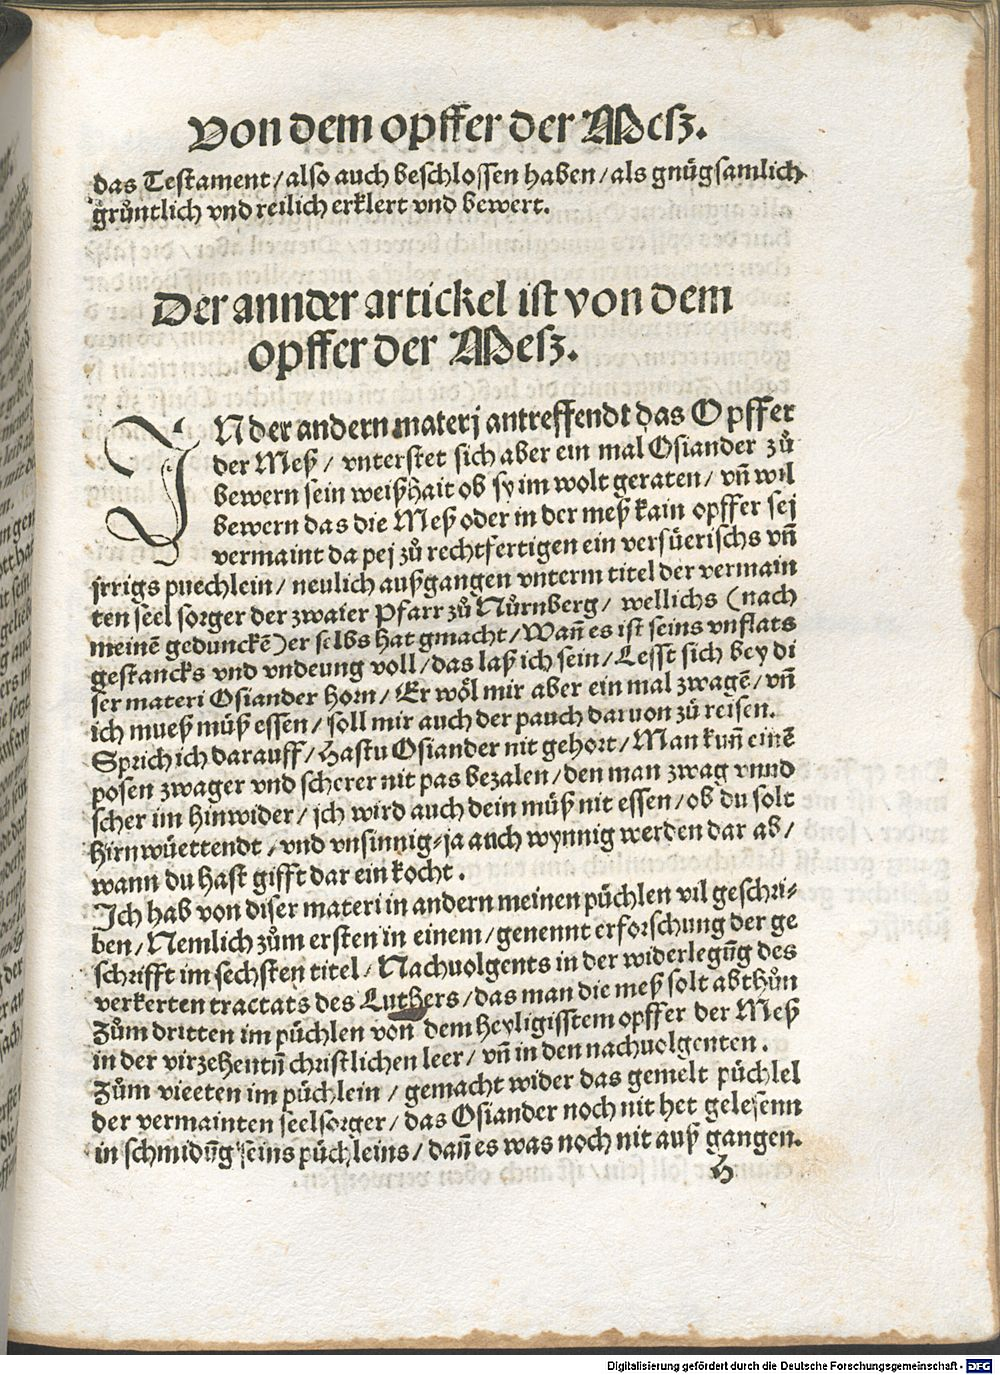 Von dem opffer der Mesz.
das Testament/also auch beschlossen haben/als gnügsamlich
gruͦntlich vnd reilich erklert vnd bewert.
Der annder artickel ist von dem
opffer der Mesz.
IN der andern materj antreffendt das Opffer
der Meß / vnterstet sich aber ein mal Osiander zuͦ
bewern sein weißhait ob sy im wolt geraten / vn̄ wil
bewern das die Meß oder in der meß kain opffer sej
vermaint da pej zuͦ rechtfertigen ein versüerischs vn̄
jrrigs puechlein / neulich außgangen vnterm titel der vermain
ten seel sorger der zwaier Pfarr zuͦ Nuͦrnberg / wellichs (nach
meinē geduncke̅) er selbs hat gmacht / Wan̄ es ist seins vnflats
gestancks vnd vndeung voll / das laß ich sein / Lesst sich bey di
ser materi Osiander horn / Er woͤl mir aber ein mal zwagē / vn̄
ich mueß müß essen / soll mir auch der pauch daruon zuͦ reisen.
Sprich ich darauff / Hastu Osiander nit gehort / Man kun̄ einē
posen zwager vnd scherer nit pas bezalen / den man zwag vnnd
scher im hinwider / jch wird auch dein müß nit essen / ob du solt
hirnwüettendt / vnd vnsinnig⸗ja auch wynnig werden dar ab /
wann du hast gifft dar ein kocht.
Ich hab von diser materi in andern meinen püchlen vil geschri⸗
ben / Nemlich zuͦm ersten in einem / genennt erforschung der ge
schrifft im sechsten titel / Nachuolgents in der widerlegūg des
verkerten tractats des Luthers / das man die meß solt abthuͦn
Zuͦm dritten im püchlen von dem heyligisstem opffer der Meß
in der virzehentn̄ christlichen leer / vn̄ in den nachuolgenten.
Zuͦm vieeten im püchlein / gemacht wider das gemelt püchlel
der vermainten seelsorger / das Osiander noch nit het gelesenn
in schmidūg seins püchleins / dan̄ es was noch nit auß gangen.
H
Digitalisierung gefördert durch die Deutsche Forschungsgemeinschaft - DFG